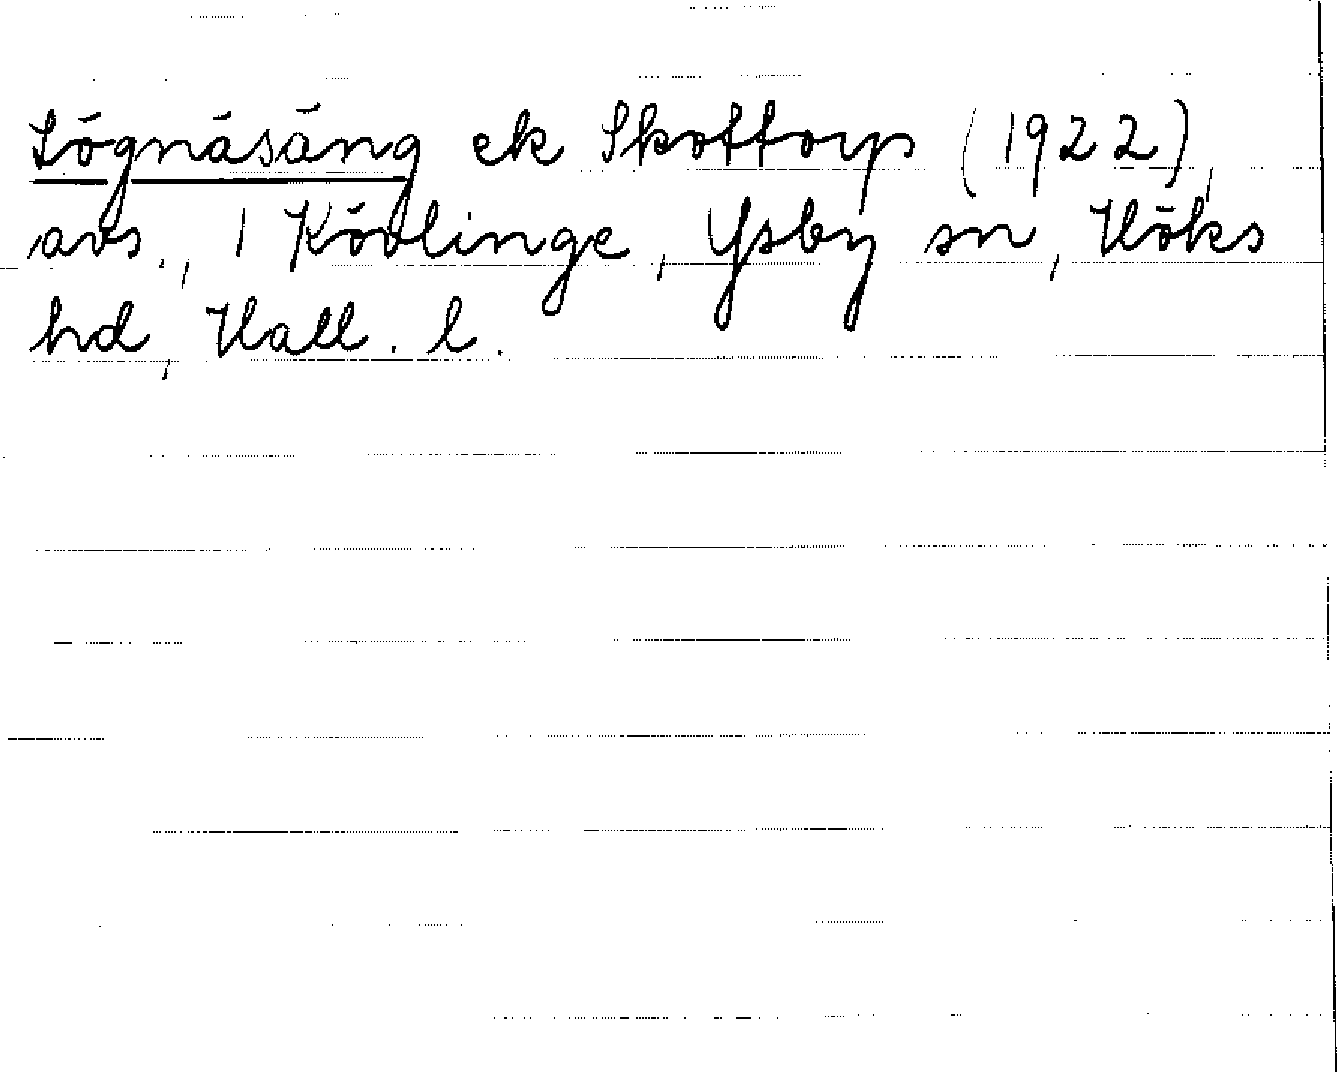 Lögnäsäng ek Skottorp (1922),
avs., 1 Kövlinge, Ysby sn, Höks
hd, Hall. l.